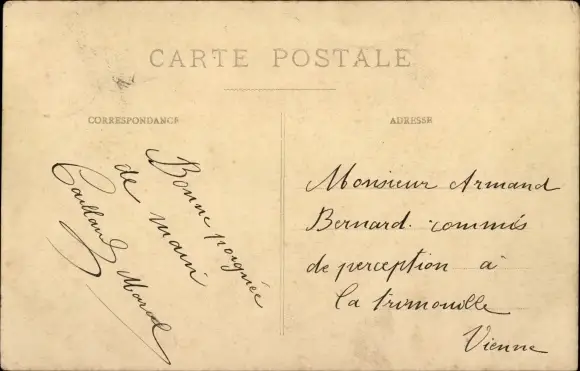 CARTE POSTALE
CORRESPONDANCE
Bonne poignée
de main
Caillaud Marcel
ADRESSE
Monsieur Armand
Bernard. commis
de perception à
la trimouille
Vienne